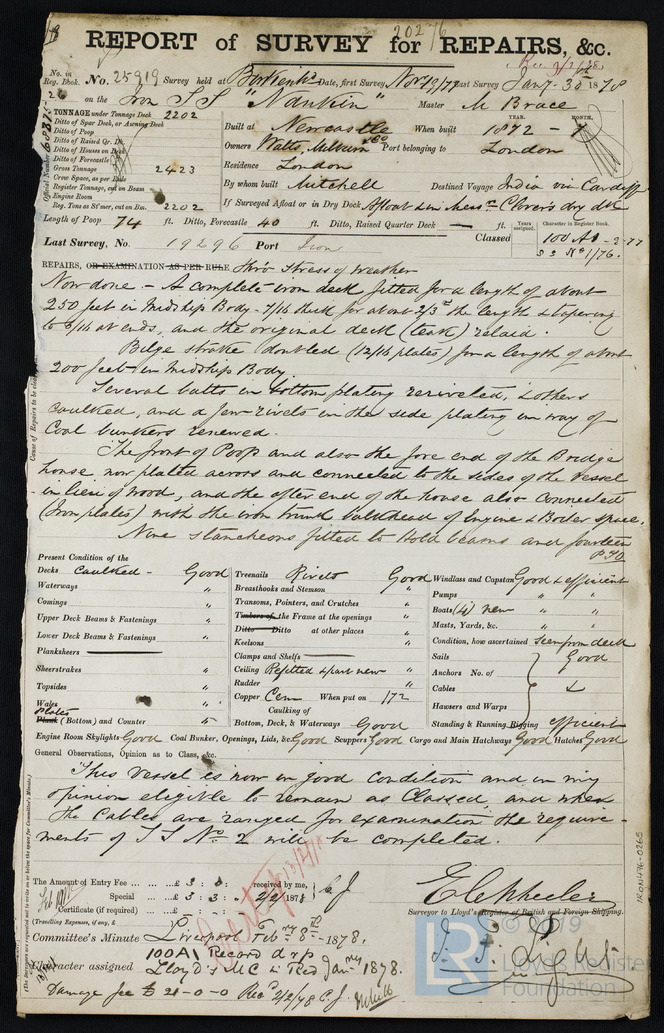 20276
REPORT of SURVEY for REPAIRS, &c.
Rec 2/2/78
No. in Reg. Book. No. 25919 Survey held at Birkenhd Date, first Survey Nov 19/77 Last Survey Jan 7-30th 1878
on the Iron S S "Nankin" Master M Brace
TONNAGE under Tonnage Deck 2202
Ditto of Spar Deck, or Awning Deck
Ditto of Poop
Ditto of Raised Qr. Dk.
Ditto of Houses on Deck
Ditto of Forecastle
Gross Tonnage 2423
Crew Space, as per Rule
Register Tonnage, cut on Beam
Engine Room
Reg. Tons as St'mer, cut on Bm. 2202
Official Number
Built at Newcastle When built YEAR. 1872 - MONTH. 7
Owners Watts, Milburn & Co Port belonging to London
Residence London
By whom built Mitchell Destined Voyage India via Cardiff
If Surveyed Afloat or in Dry Dock Afloat & in Messrs Clover's dry dks
Length of Poop 74 ft. Ditto, Forecastle 40 ft. Ditto, Raised Quarter Deck — ft.
Years assigned. Character in Register Book.
Last Survey, No. 19296 Port Iron Classed 100 A1 - 2-77
S S No 1/76.
REPAIRS, OR EXAMINATION AS PER RULE Thro' Stress of weather
Now done - A complete iron deck fitted for a length of about
250 feet in Midship Body - 7/16 thick for about 2/3rd the length & tapering
to 6/16 at ends, and the original deck (teak) relaid.
Bilge strake doubled (12/16 plates) for a length of about
200 feet in Midship Body.
Several butts in bottom plating reriveted, & others
caulked, and a few rivets in the side plating in way of
Coal bunkers renewed.
The front of Poop and also the fore end of the Bridge
house now plated across and connected to the sides of the Vessel
in lieu of wood, and the after end of the house also connected
(Iron plates) with the iron trunk bulkhead of Engine & Boiler space.
Nine Stancheons fitted to Hold beams and fourteen
P.T.O
Cause of Repairs to be
Present Condition of the
Decks Caulked - Good
Waterways "
Comings "
Upper Deck Beams & Fastenings "
Lower Deck Beams & Fastenings "
Planksheers
Sheerstrakes "
Topsides "
Wales "
Plates Plank (Bottom) and Counter "
Treenails Rivets Good
Breasthooks and Stemson "
Transoms, Pointers, and Crutches "
Timbers of the Frame at the openings "
Ditto Ditto at other places "
Keelsons "
Clamps and Shelfs
Ceiling Refitted & part new "
Rudder "
Copper Cem When put on /72
Caulking of
Bottom, Deck, & Waterways Good
Windlass and Capstan Good & efficient
Pumps " "
Boats (4) new " "
Masts, Yards, &c. " "
Condition, how ascertained Seen from deck
Sails Good
Anchors No. of
Cables &
Hawsers and Warps
Standing & Running Rigging efficient
Engine Room Skylights Good Coal Bunker, Openings, Lids, &c. Good Scuppers Good Cargo and Main Hatchways Good Hatches Good
General Observations, Opinion as to Class, &c.
This Vessel is now in good condition and in my
opinion eligible to remain as Classed, and when
the Cables are ranged for examination the require-
ments of S S No 2 will be completed.
The Amount of Entry Fee ... £ 3 : 0 : received by me,
Special ... £ 3 : 3 : 2/2/1878
Certificate (if required) ... £ : :
(Travelling Expenses, if any, £
E C Wheeler
Surveyor to Lloyd's Register of British and Foreign Shipping.
Committee's Minute Liverpool Feby 8th - 1878.
100A1 Record drp
Character assigned Lloyd's MC in Red Jany 1878.
Damage fee £ 21-0-0 Recd 2/2/78 C. J.
IRON476-0265
© 2019
LR
Lloyd's Register
Foundation